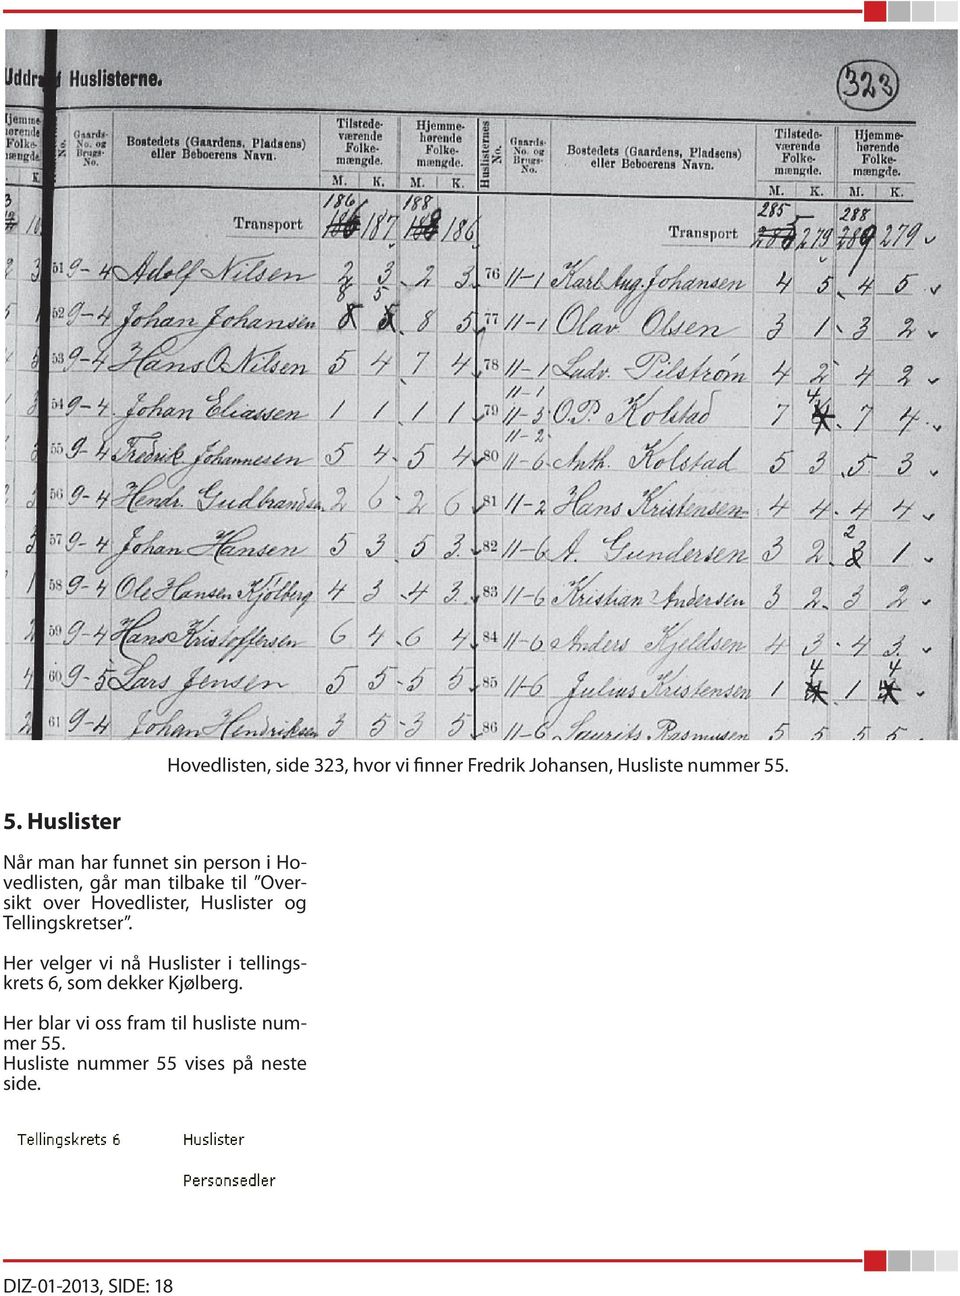 Uddra f Huslisterne.
323
Hjemme-
hørende
Folke-
mængde.
K.
No.
Gaards-
No. og
Brugs-
No.
Bostedets (Gaardens, Pladsens)
eller Beboerens Navn.
Tilstede-
værende
Folke-
mængde.
M. K.
Hjemme-
hørende
Folke-
mængde.
M. K.
Huslisternes
No.
Gaards-
No. og
Brugs-
No.
Bostedets (Gaardens, Pladsens)
eller Beboerens Navn.
Tilstede-
værende
Folke-
mængde.
M. K.
Hjemme-
hørende
Folke-
mængde.
M. K.
Transport 186 187 188 186
Transport 285 279 288 279
51 9-4 Adolf Nilsen 2 3 2 3
76 11-1 Karl Aug. Johansen 4 5 4 5
52 9-4 Johan Johansen 8 5 8 5
77 11-1 Olav Olsen 3 1 3 2
53 9-4 Hans O. Nilsen 5 4 7 4
78 11-1 Ludv. Pilstrøm 4 2 4 2
54 9-4 Johan Eliassen 1 1 1 1
79 11-1 11-3 O.P. Kolstad 7 4 7 4
55 9-4 Fredrik Johannesen 5 4 5 4
80 11-2 11-6 Anth. Kolstad 5 3 5 3
56 9-4 Hendr. Gudbrandsen 2 6 2 6
81 11-2 Hans Kristensen 4 4 4 4
57 9-4 Johan Hansen 5 3 5 3
82 11-6 A. Gundersen 3 2 2 1
58 9-4 Ole Hansen Kjölberg 4 3 4 3
83 11-6 Kristian Andersen 3 2 3 2
59 9-4 Hans Kristoffersen 6 4 6 4
84 11-6 Anders Kjeldsen 4 3 4 3
60 9-5 Lars Jensen 5 5 5 5
85 11-6 Julius Kristensen 1 4 1 4
61 9-4 Johan Hendriksen 3 5 3 5
86 11-6 Laurits Rasmusen 5 5 5 5
Hovedlisten, side 323, hvor vi finner Fredrik Johansen, Husliste nummer 55.
5. Huslister
Når man har funnet sin person i Ho-
vedlisten, går man tilbake til ”Over-
sikt over Hovedlister, Huslister og
Tellingskretser”.
Her velger vi nå Huslister i tellings-
krets 6, som dekker Kjølberg.
Her blar vi oss fram til husliste num-
mer 55.
Husliste nummer 55 vises på neste
side.
Tellingskrets 6 Huslister
Personsedler
DIZ-01-2013, SIDE: 18